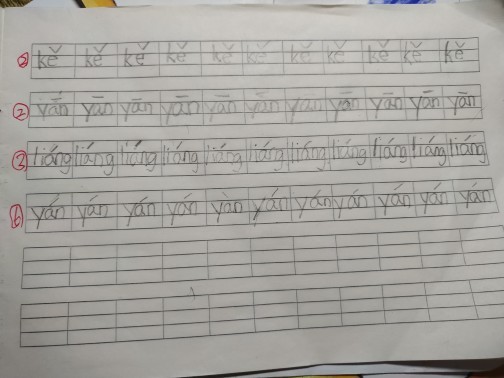 ② kě kě kě kě kě kě kě kě kě kě kě
② yán yān yān yān yān yān yān yān yān yān yān
② liáng liáng liáng liáng liáng liáng liáng liáng liáng liáng liáng
⑥ yán yán yán yán yàn yán yán yán yán yán yán